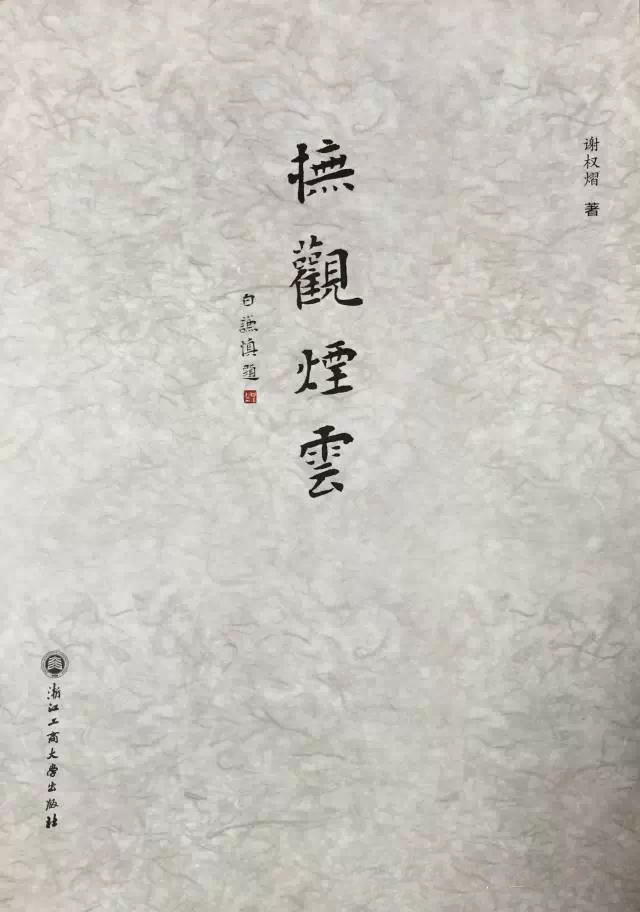 谢权熠 著
撫觀煙雲
白謙慎題
浙江工商大学出版社